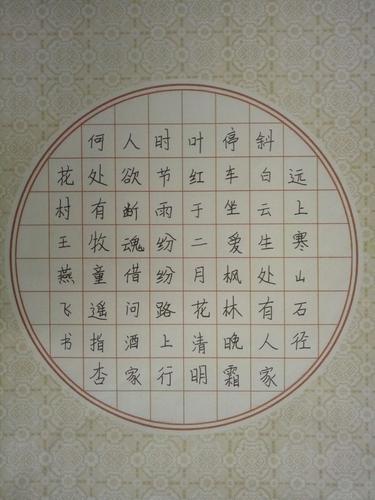 远上寒山石径
斜白云生处有人家
停车坐爱枫林晚霜
叶红于二月花清明
时节雨纷纷路上行
人欲断魂借问酒家
何处有牧童遥指杏
花村王燕飞书